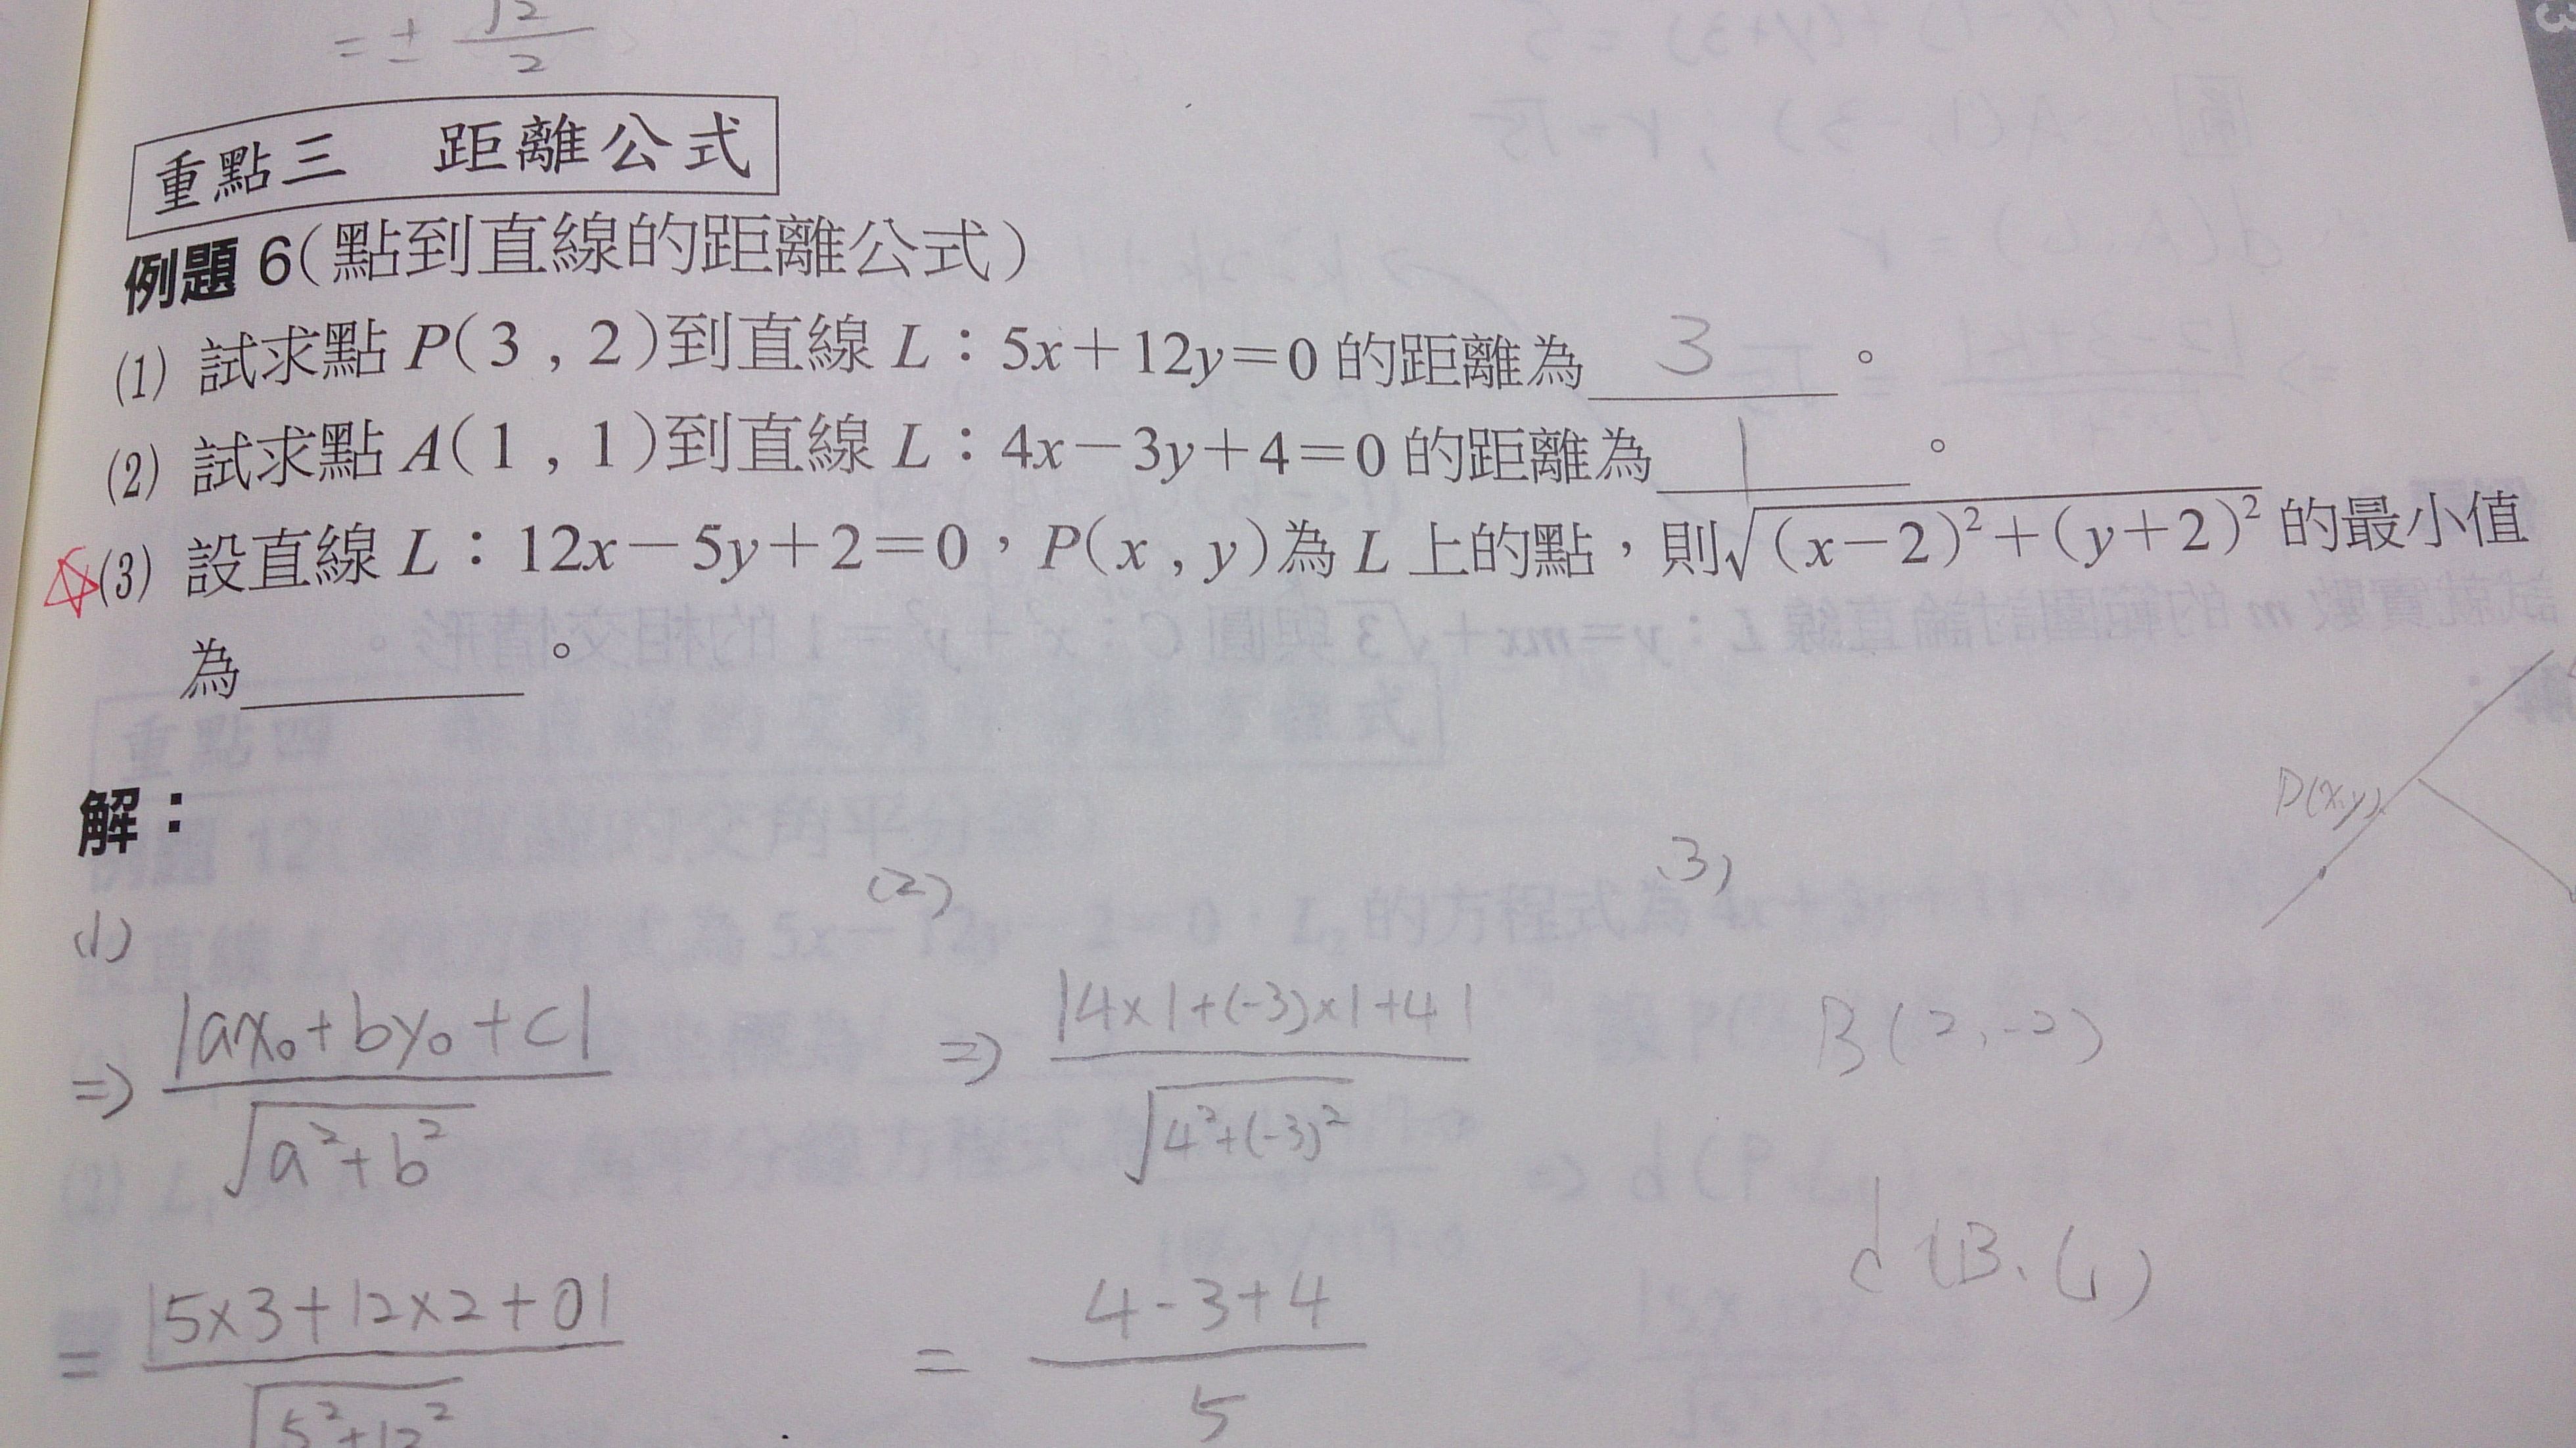 = ± √2/2
重點三 距離公式
例題 6(點到直線的距離公式)
(1) 試求點 P(3 , 2)到直線 L：5x+12y=0 的距離為 3 。
(2) 試求點 A(1 , 1)到直線 L：4x-3y+4=0 的距離為 1 。
(3) 設直線 L：12x-5y+2=0，P(x , y)為 L 上的點，則√((x-2)²+(y+2)²) 的最小值
為 。
解：
P(x,y)
(1)
⇒ |ax₀+by₀+c| / √(a²+b²)
= |5×3+12×2+0| / √(5²+12²)
(2)
⇒ |4×1+(-3)×1+4| / √(4²+(-3)²)
= (4-3+4) / 5
(3)
B(2,-2)
d(B、L)